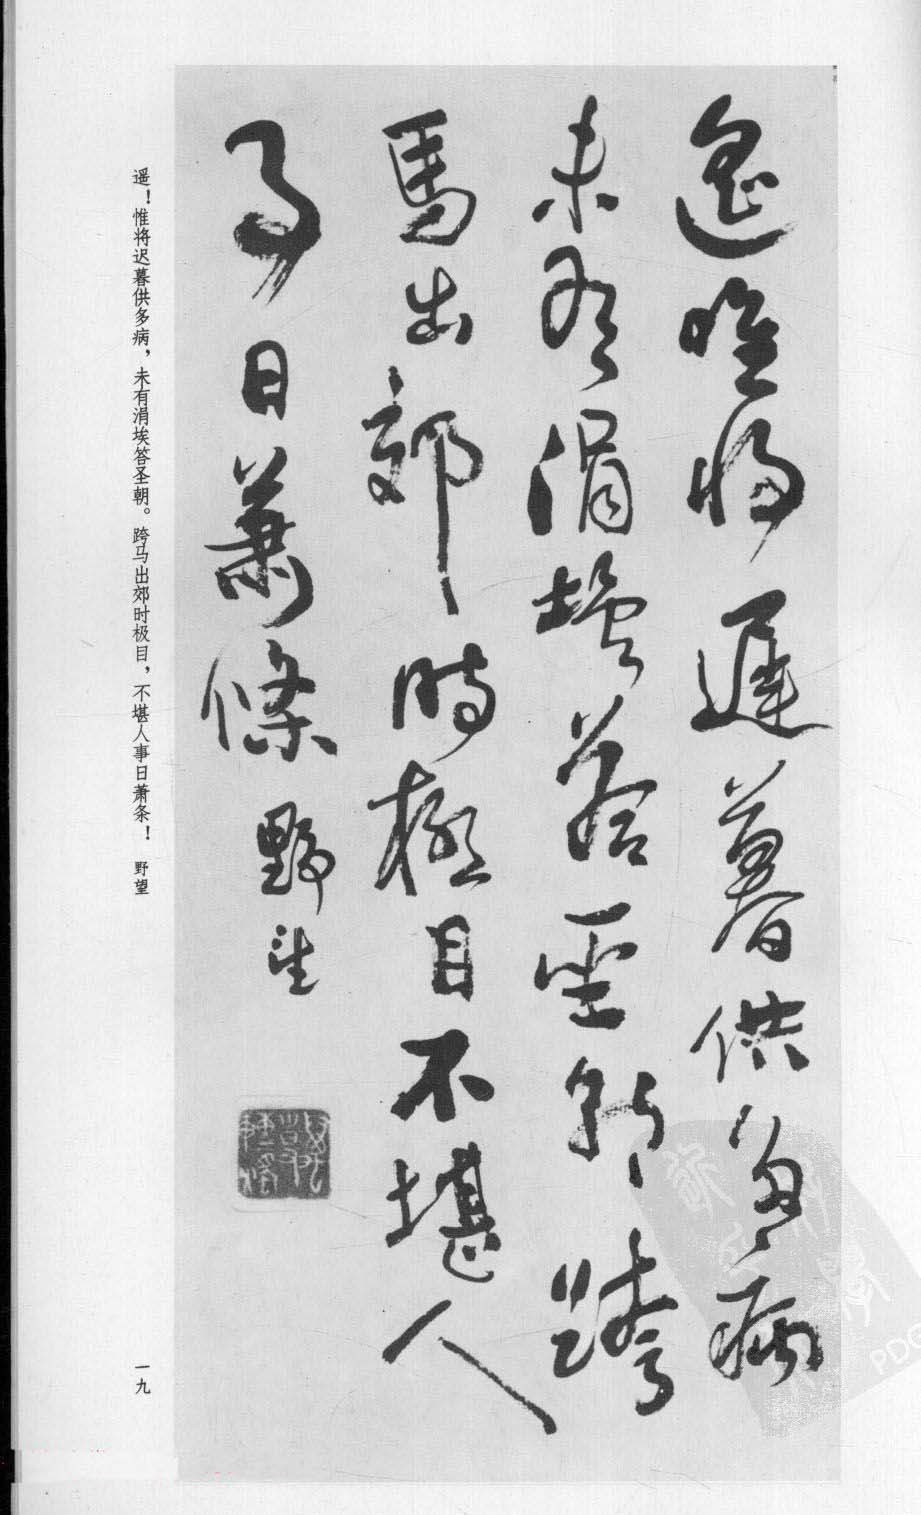 遥唯将遲暮供多病
未有涓埃答聖朝跨
馬出郊時極目不堪人
事日蕭條野望
遥！惟将迟暮供多病，未有涓埃答圣朝。跨马出郊时极目，不堪人事日萧条！ 野望
一九
PDG